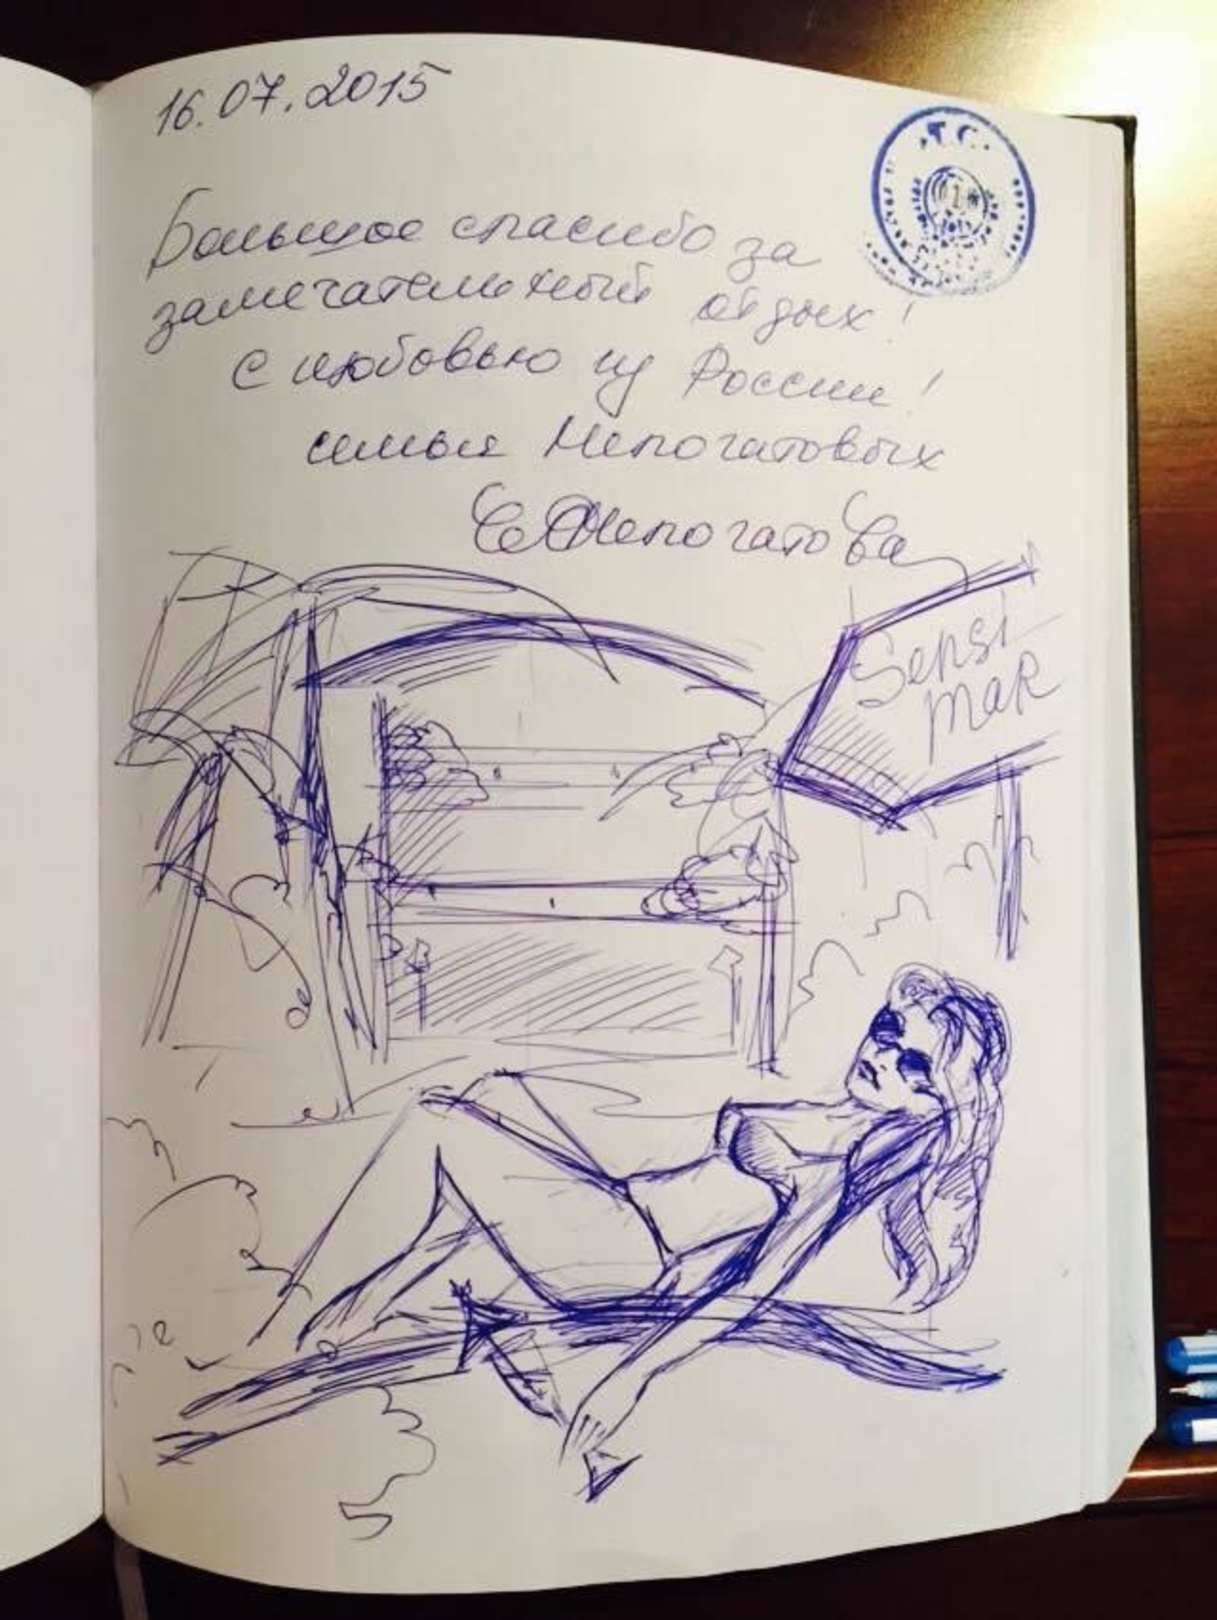 16.07.2015
Т.С.
Большое спасибо за
замечательный отдых!
С любовью из России!
семья Непогатовых
Непогатова
Sensi
maR